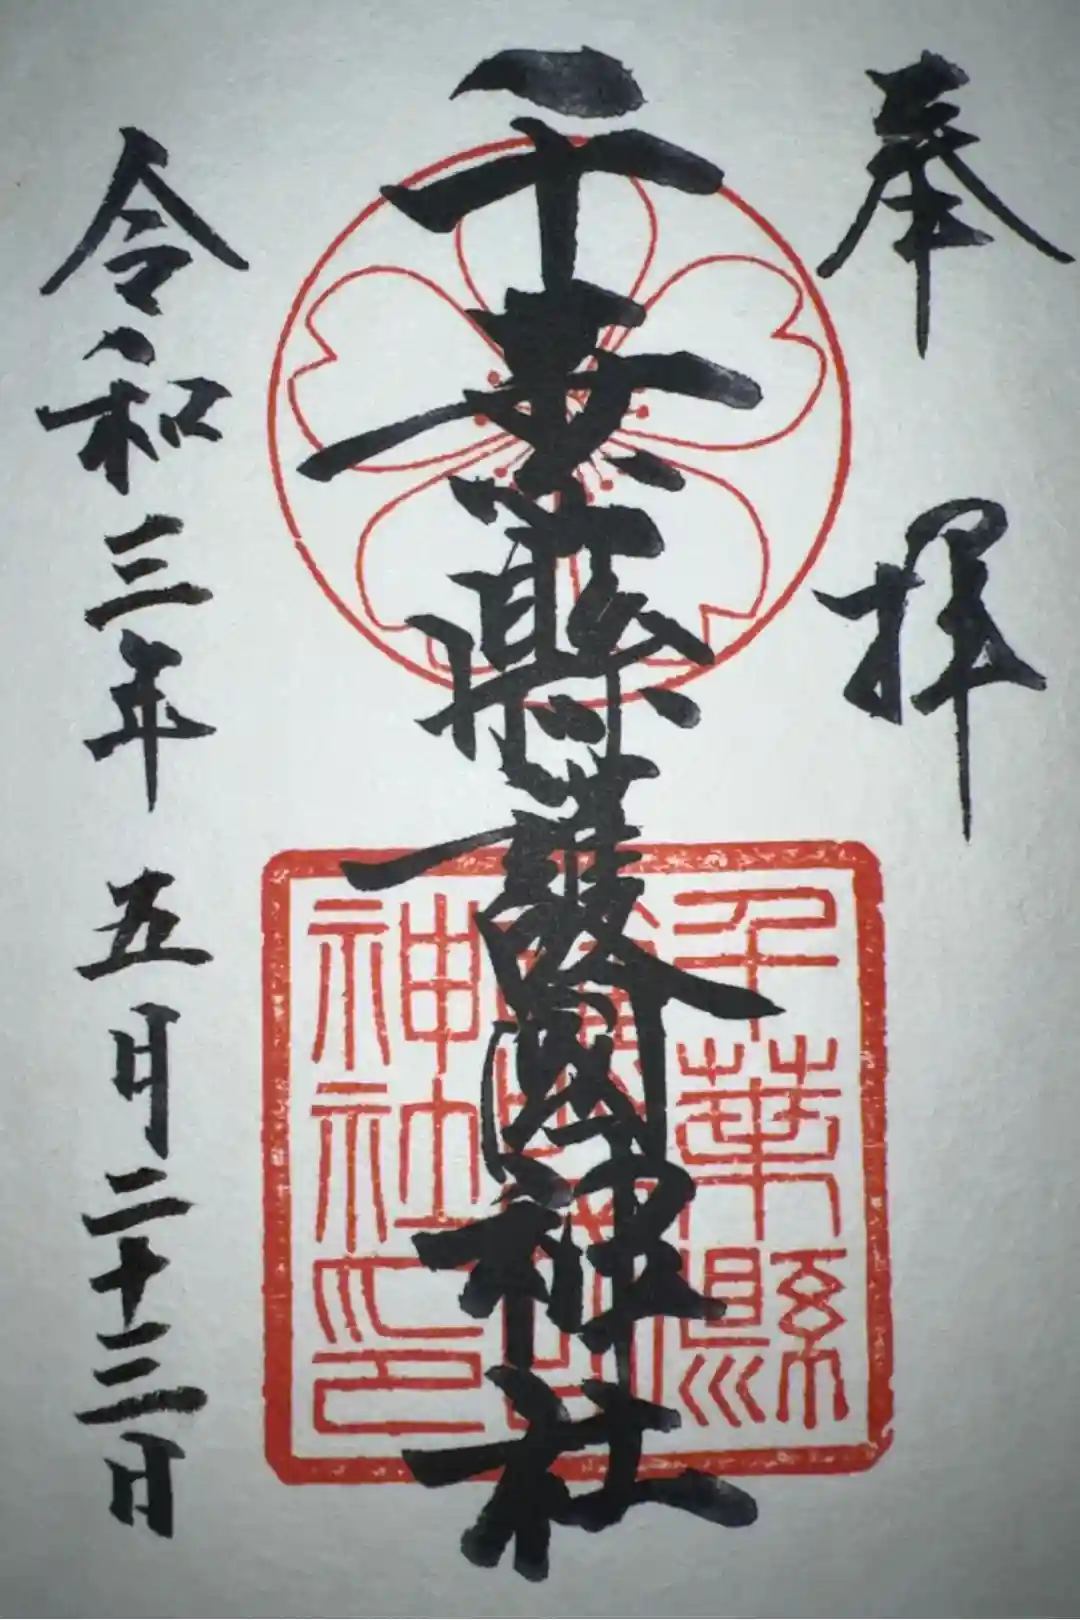 奉拝
千葉縣護國神社
令和三年五月二十三日
千葉縣
護國神社
神社印